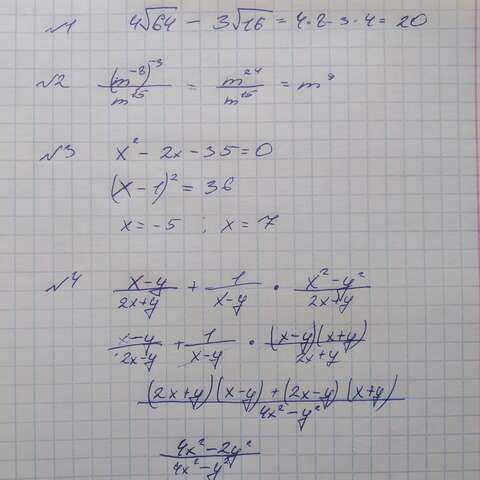 №1 4√64 - 3√16 = 4·8-3·4 = 20
№2 (m⁻⁸)⁻³/m¹⁵ = m²⁴/m¹⁵ = m⁹
№3 x² - 2x - 35 = 0
(x - 1)² = 36
x = -5 ; x = 7
№4 (x-y)/(2x+y) + 1/(x-y) · (x²-y²)/(2x+y)
(x-y)/(2x-y) + 1/(x-y) · (x-y)(x+y)/(2x+y)
(2x+y)(x-y)+(2x-y)(x+y)/(4x²-y²)
(4x²-2y²)/(4x²-y²)